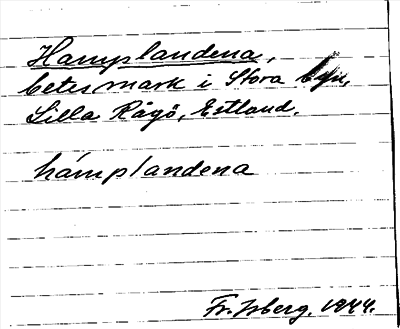 Hamplandena,
betesmark i Stora byn,
Lilla Rågö, Estland.
hámplandena
Fr. Isberg. 1944.